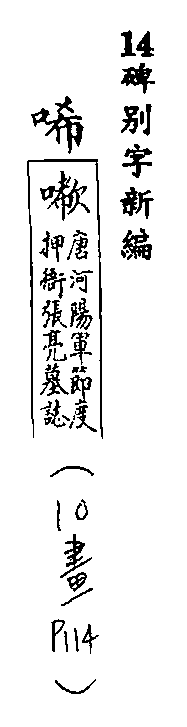 14碑別字新編
唏
㘎唐河陽軍節度
押衙張亮墓誌
(10畫P114)